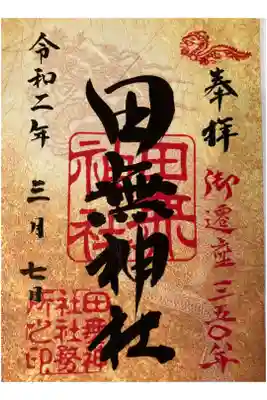 奉拝
御遷座三五〇年
田無神社
田無神社
令和二年 三月 七日
田無神社社務所之印